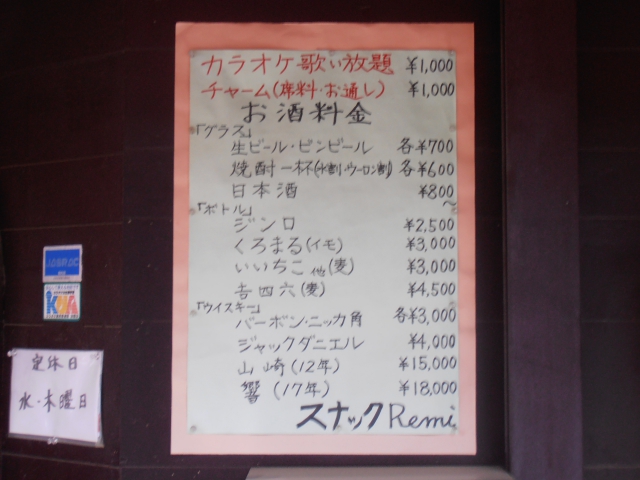 カラオケ歌い放題 ¥1,000
チャーム(席料・お通し) ¥1,000
お酒料金
「グラス」
生ビール・ビンビール 各¥700
焼酎一杯(水割・ウーロン割) 各¥600
日本酒 ¥800〜
「ボトル」
ジンロ ¥2,500
くろまる(イモ) ¥3,000
いいちこ他(麦) ¥3,000
吉四六(麦) ¥4,500
「ウイスキー」
バーボン・ニッカ角 各¥3,000
ジャックダニエル ¥4,000
山崎(12年) ¥15,000
響(17年) ¥18,000
スナックRemi
JASRAC
定休日
水・木曜日